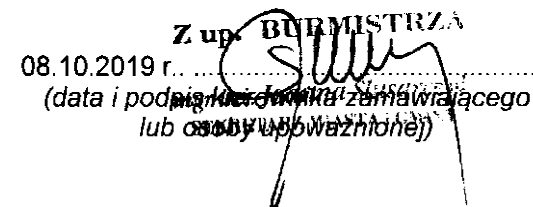 Z up. BURMISTRZA
08.10.2019 r.. ........................................
(data i podpis kierownika zamawiającego
lub osoby upoważnionej)